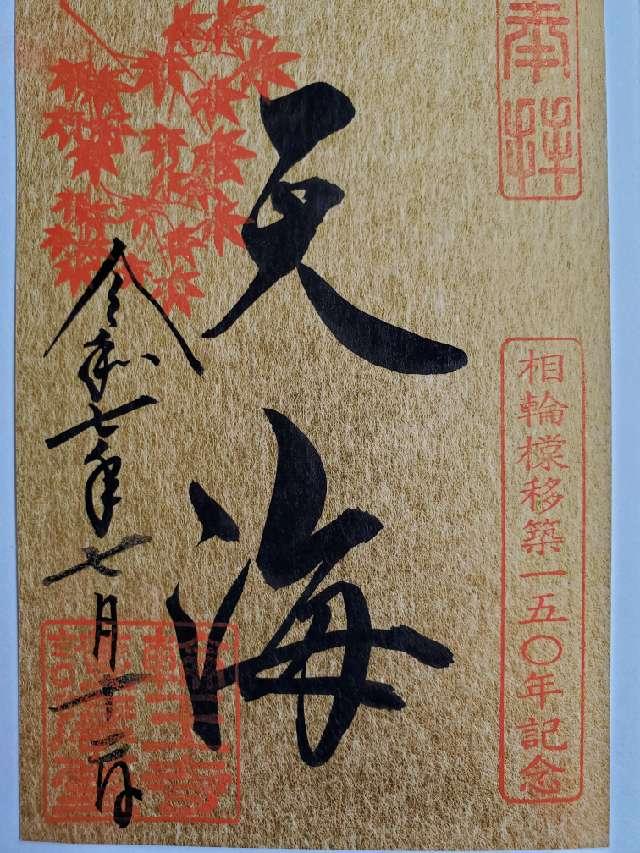 奉拝
相輪橖移築一五〇年記念
天海
令和七年七月十二日
輪王寺
護摩堂